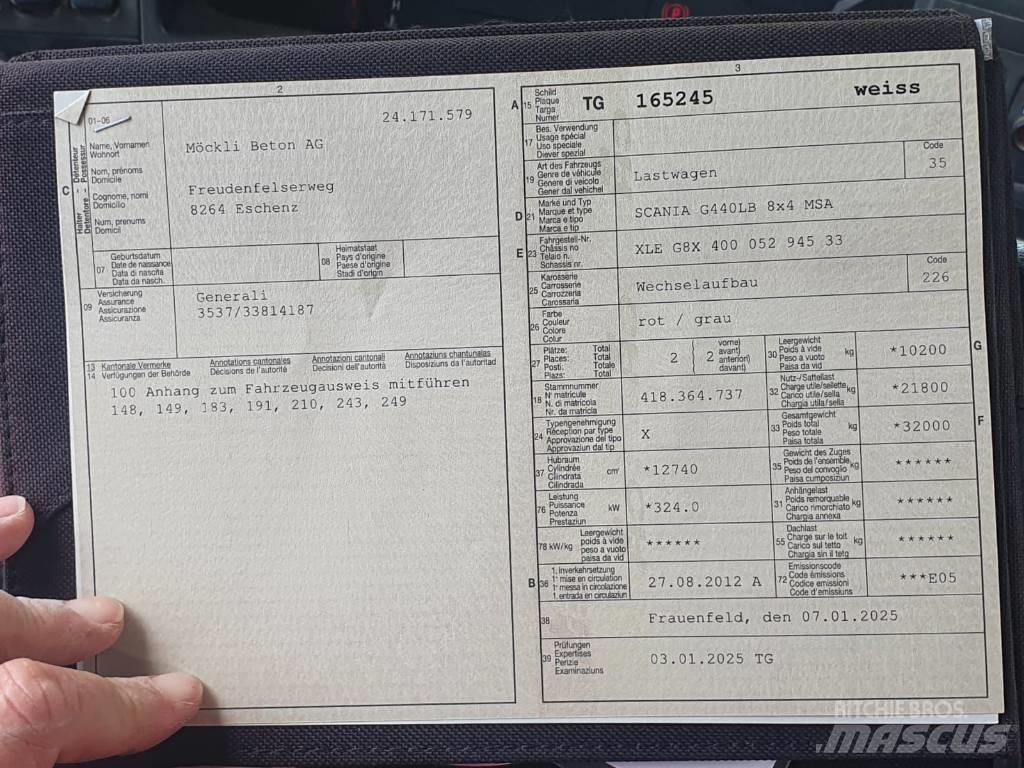 2
01-06
24.171.579
C
Halter - Détenteur
Detentore - Possessur
Name, Vornamen
Wohnort
Nom, prénoms
Domicile
Cognome, nomi
Domicilio
Num, prenums
Domicil
Möckli Beton AG
Freudenfelserweg
8264 Eschenz
07
Geburtsdatum
Date de naissance
Data di nascita
Data da nasch.
08
Heimatstaat
Pays d'origine
Paese d'origine
Stadi d'origin
09
Versicherung
Assurance
Assicurazione
Assicuranza
Generali
3537/33814187
13 Kantonale Vermerke
14 Verfügungen der Behörde
Annotations cantonales
Décisions de l'autorité
Annotazioni cantonali
Decisioni dell'autorità
Annotaziuns chantunalas
Disposiziuns da l'autoritad
100 Anhang zum Fahrzeugausweis mitführen
148, 149, 183, 191, 210, 243, 249
3
A
15
Schild
Plaque
Targa
Numer
TG 165245 weiss
17
Bes. Verwendung
Usage spécial
Uso speciale
Diever spezial
19
Art des Fahrzeugs
Genre de véhicule
Genere di veicolo
Gener dal vehichel
Lastwagen
Code
35
D
21
Marke und Typ
Marque et type
Marca e tipo
Marca e tip
SCANIA G440LB 8x4 MSA
E
23
Fahrgestell-Nr.
Châssis no
Telaio n.
Schassis nr.
XLE G8X 400 052 945 33
25
Karosserie
Carrosserie
Carrozzeria
Carossaria
Wechselaufbau
Code
226
26
Farbe
Couleur
Colore
Colur
rot / grau
27
Plätze: Total
Places: Total
Posti: Totale
Plazs: Total
2
( 2
vorne)
avant)
anteriori)
davant)
30
Leergewicht
Poids à vide
Peso a vuoto
Paisa da vid
kg
*10200
G
18
Stammnummer
N° matricule
N. di matricola
Nr. da matricla
418.364.737
32
Nutz-/Sattellast
Charge utile/sellette
Carico utile/sella
Chargia utila/sella
kg
*21800
24
Typengenehmigung
Réception par type
Approvazione del tipo
Approvaziun dal tip
X
33
Gesamtgewicht
Poids total
Peso totale
Paisa totala
kg
*32000
F
37
Hubraum
Cylindrée
Cilindrata
Cilindrada
cm³
*12740
35
Gewicht des Zuges
Poids de l'ensemble
Peso del convoglio
Paisa cumposiziun
kg
******
76
Leistung
Puissance
Potenza
Prestaziun
kW
*324.0
31
Anhängelast
Poids remorquable
Carico rimorchiato
Chargia annexa
kg
******
78 kW/kg
Leergewicht
poids à vide
peso a vuoto
paisa da vid
******
55
Dachlast
Charge sur le toit
Carico sul tetto
Chargia sin il tetg
kg
******
B
36
1. Inverkehrsetzung
1re mise en circulation
1a messa in circolazione
1. entrada en circulaziun
27.08.2012 A
72
Emissionscode
Code émissions
Codice emissioni
Code d'emissiuns
***E05
38
Frauenfeld, den 07.01.2025
39
Prüfungen
Expertises
Perizie
Examinaziuns
03.01.2025 TG
RITCHIE BROS.
MASCUS